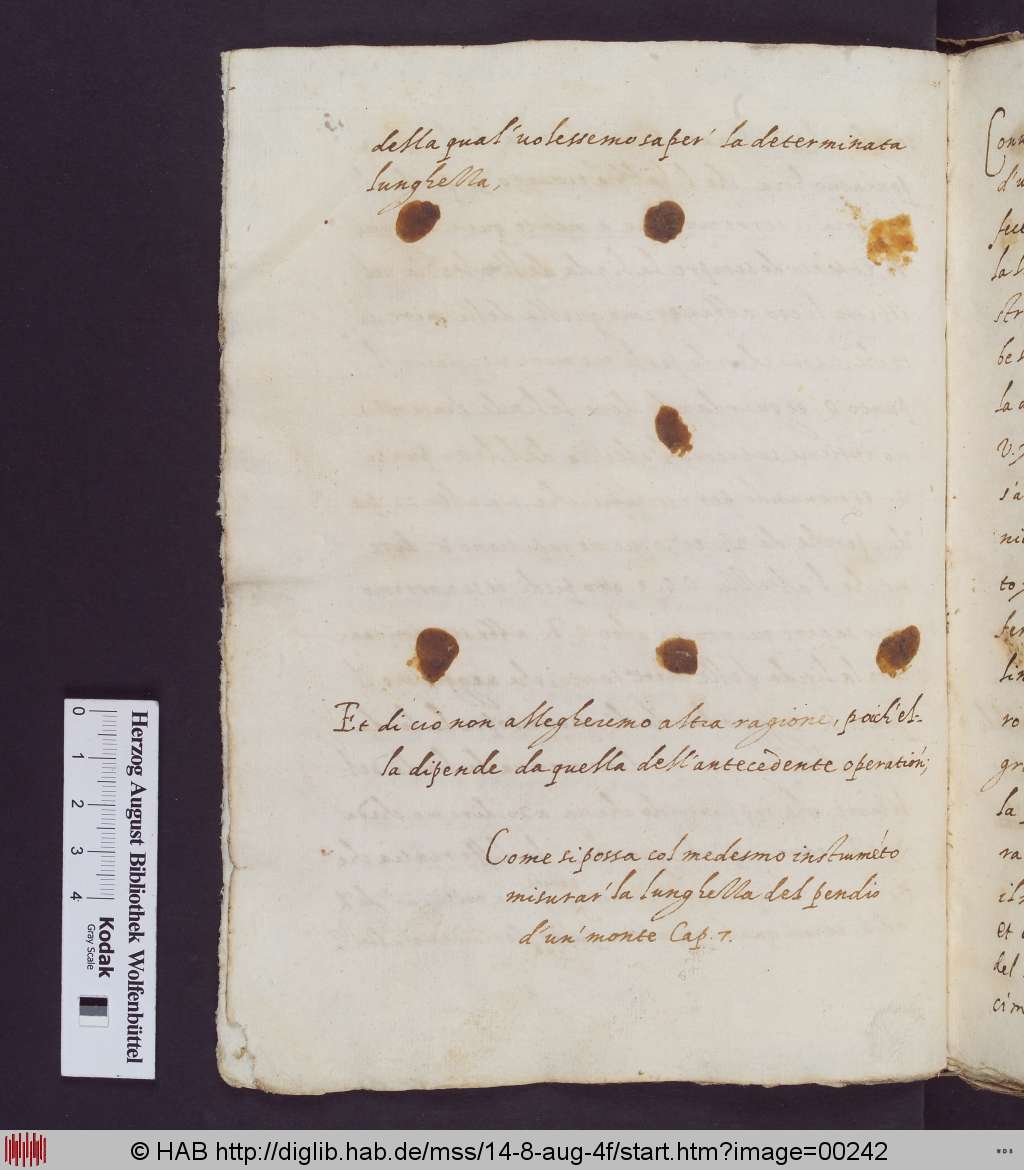 della qual' uolessemo saper' la determinata
lunghella,
Et di ciò non allegheremo altra ragione, poich'el-
la dipende da quella dell'antecedente operation';
Come si possa col medesmo instrumēto
misurar' la lunghella del pendio
d'un' monte Cap. 7.
d'u
la l
str
be s
la
V.
s'a
nic
to
fer
lin
ro
gra
la
ra
il
et
del
cim
0 1 2 3 4
Herzog August Bibliothek Wolfenbüttel
Kodak
Gray Scale
© HAB http://diglib.hab.de/mss/14-8-aug-4f/start.htm?image=00242